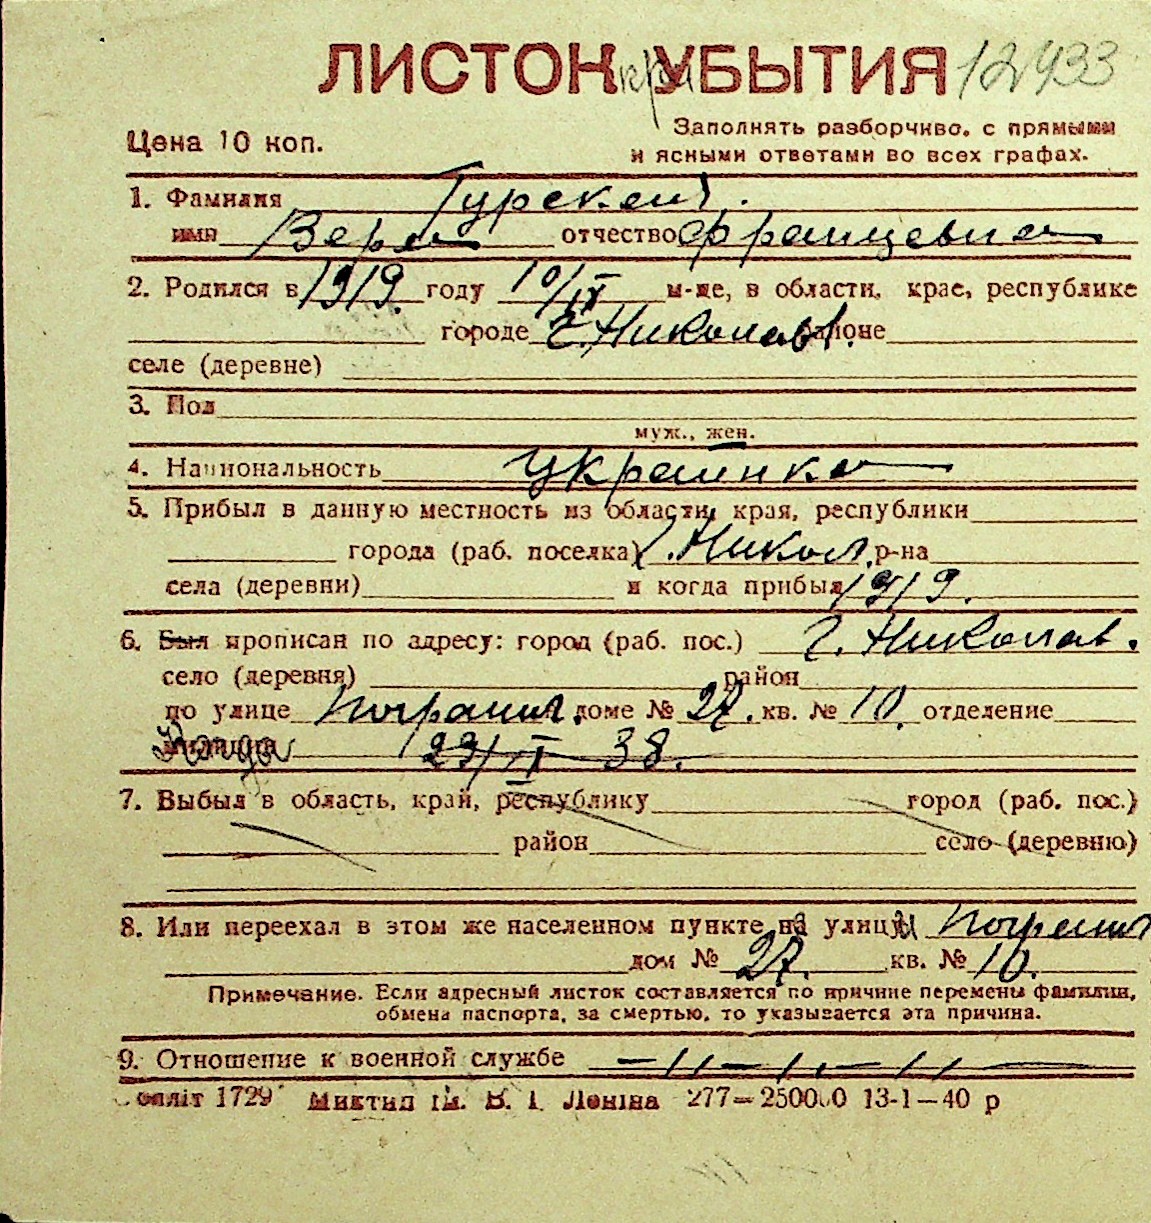 ЛИСТОК УБЫТИЯ 12433
Цена 10 коп.
Заполнять разборчиво, с прямыми
и ясными ответами во всех графах.
1. Фамилия
имя Вера отчество Францевна
2. Родился в 1919 году 10/IX м-це, в области, крае, республике
городе г. Николаев районе
селе (деревне)
3. Пол
муж., жен.
4. Национальность украинка
5. Прибыл в данную местность из области, края, республики
города (раб. поселка) г. Никол. р-на
села (деревни) и когда прибыл 1919.
6. Был прописан по адресу: город (раб. пос.) г. Николаев.
село (деревня) район
по улице Погранич. доме № 27. кв. № 10. отделение
милиции Когда 38.
7. Выбыл в область, край, республику город (раб. пос.)
район село (деревню)
8. Или переехал в этом же населенном пункте на улицу Погранич
дом № 27. кв. № 10.
Примечание. Если адресный листок составляется по причине перемены фамилии,
обмена паспорта, за смертью, то указывается эта причина.
9. Отношение к военной службе — 11 — 1, — 11 —
1729 ім. В. І. Леніна 277—250000 13-1—40 р